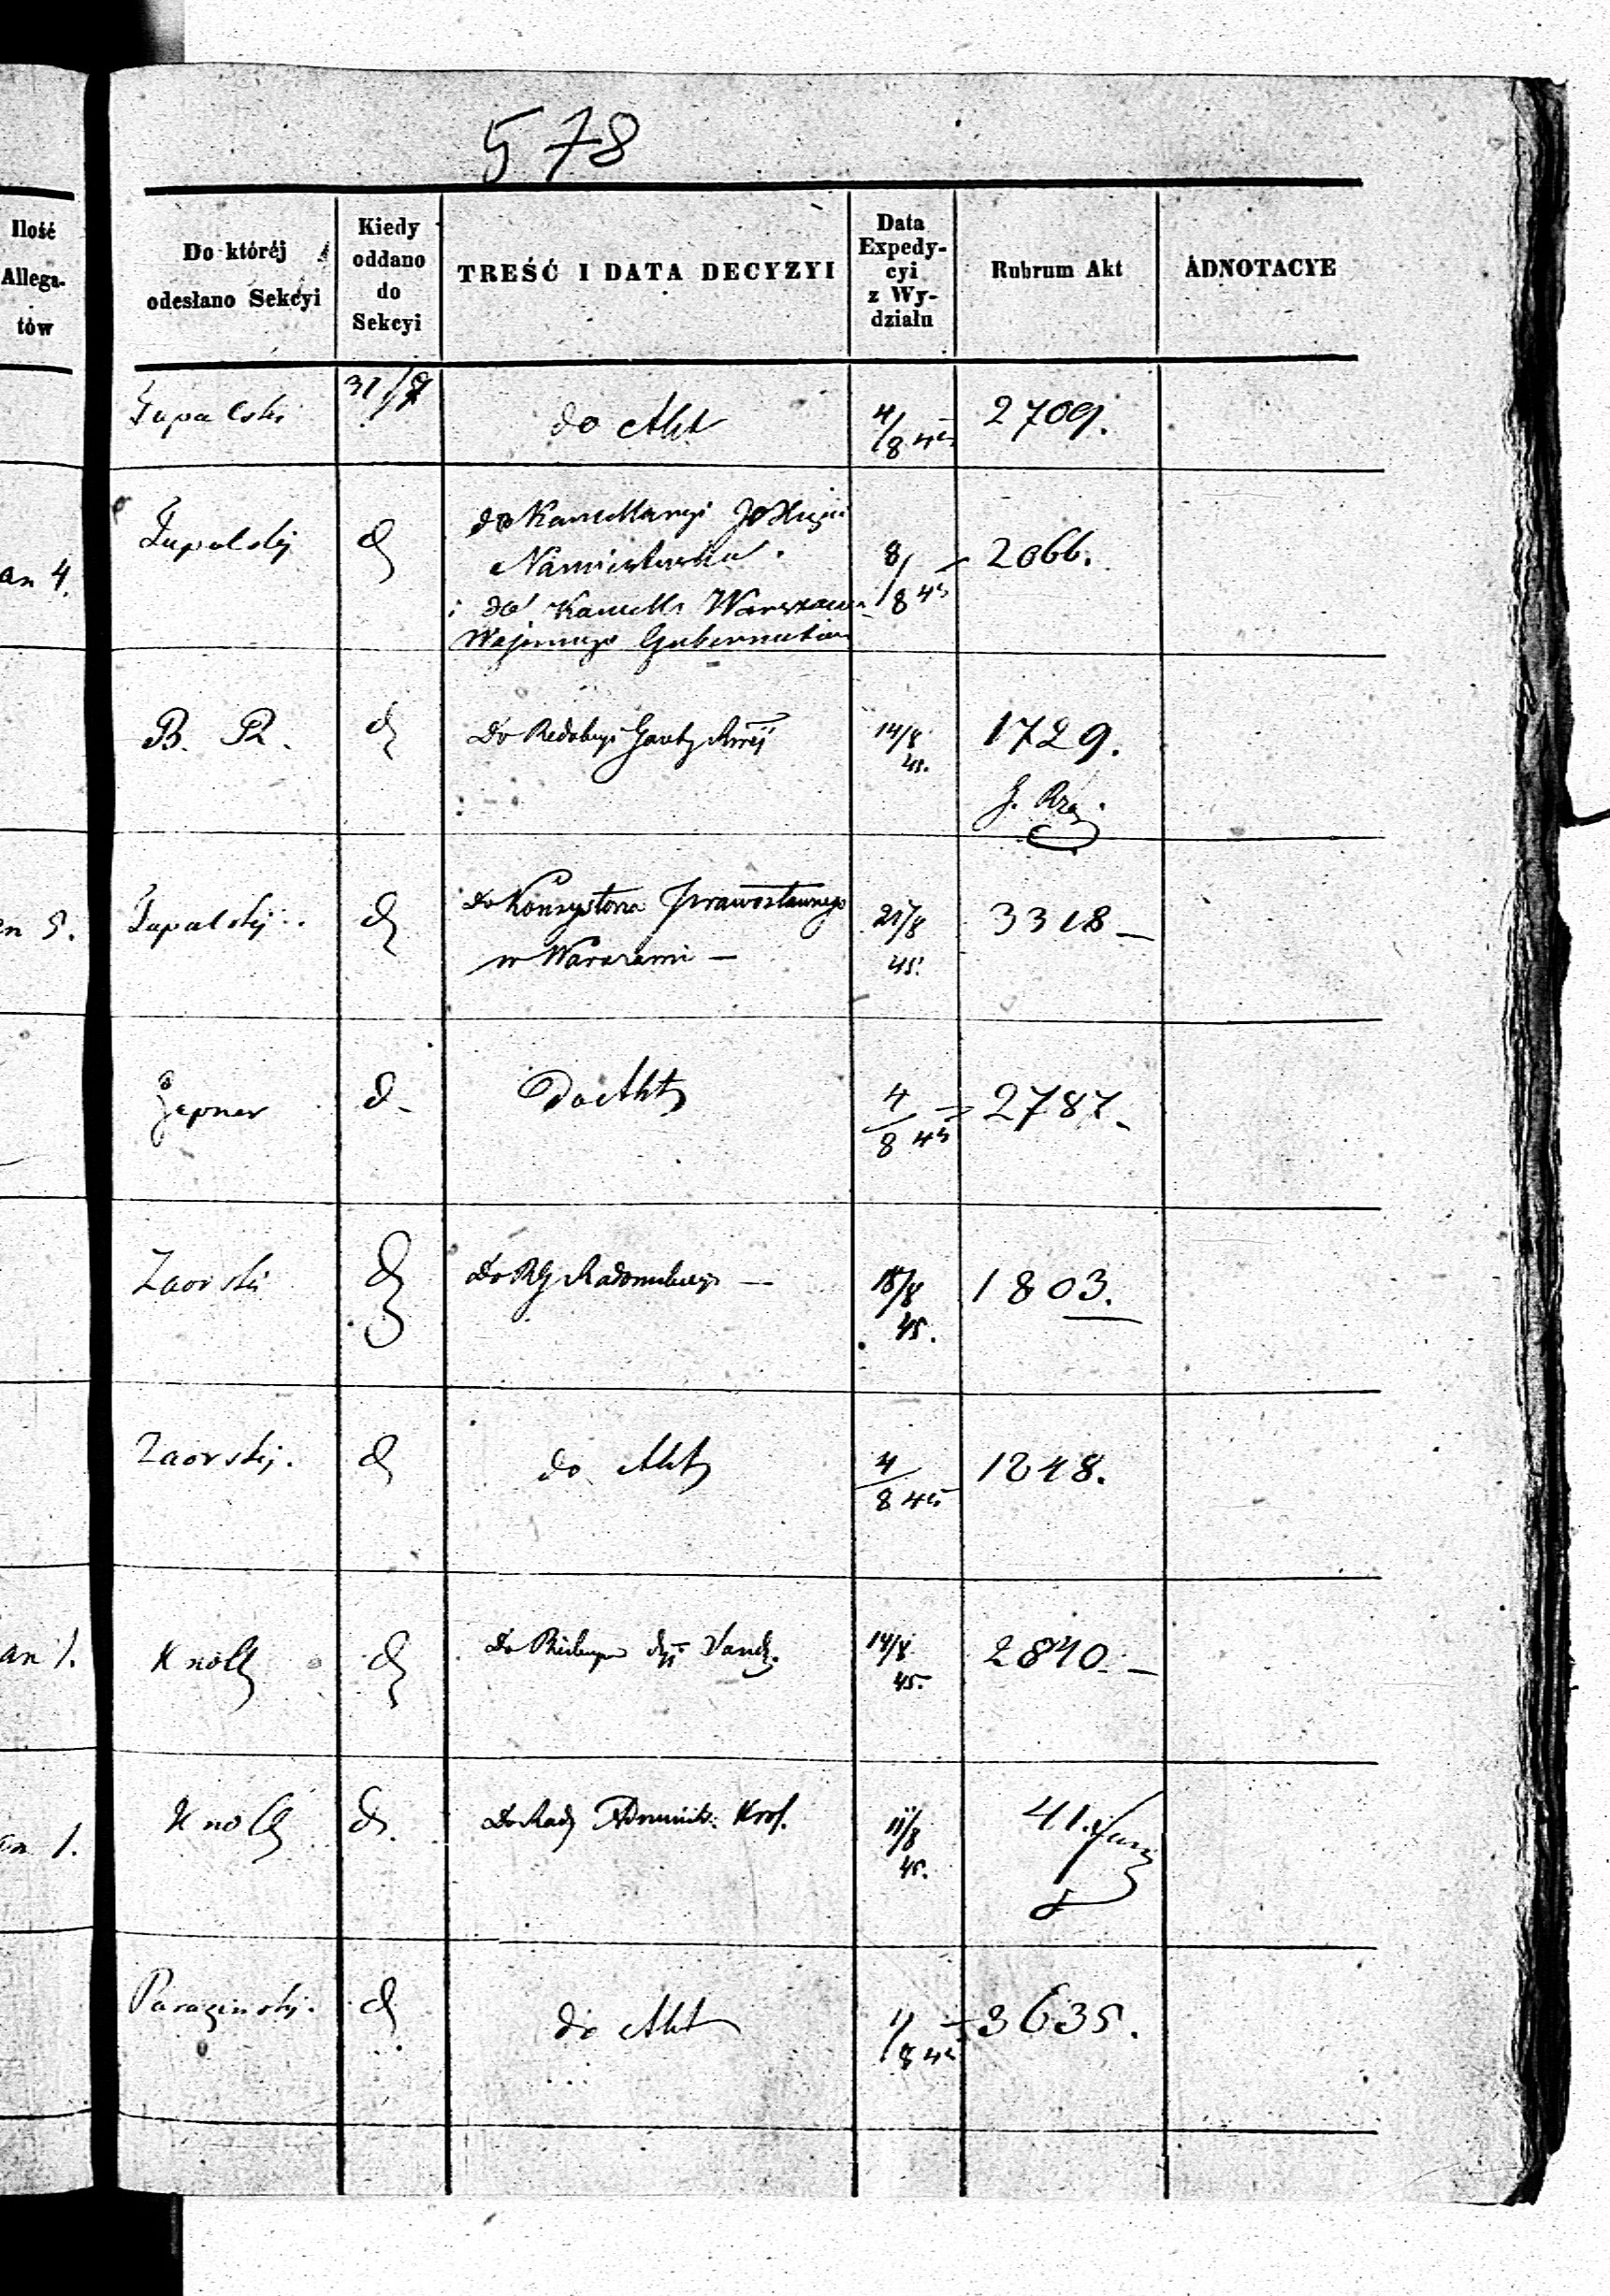 578
Ilość
Allega-
tów
Do któréj
odesłano Sekcyi
Kiedy
oddano
do
Sekcyi
TREŚĆ I DATA DECYZYI
Data
Expedy-
cyi
z Wy-
działu
Rubrum Akt
ADNOTACYE
Żupalski 31/7 do Akt 4/8 45 2709.
an 4. Żupalskij d do Kancellaryi JO Xięcia
Namiestnika. 8/8 45 2066.
i do Kancell Warszaws
Wojennego Gubernatora
B. R. d Do Redakcyi Gazety Rząj 14/8 45. 1729.
G. Rzą.
an 5. Żupalskij d do Konsystorza Prawosławnego 21/8 45. 3318
w Warszawie
Żepner d. Do Akt 4/8 45 2787.
Zaorski d Do RG Radomskiego 18/8 45. 1803.
Zaorskij. d do Akt 4/8 45 1248.
an 1. Knoll d Do 14/8 45. 2840.
an 1. Knoll d. Do Rady Administr: Król. 11/8 45. 41.
d do Akt 1/8 45 3635.